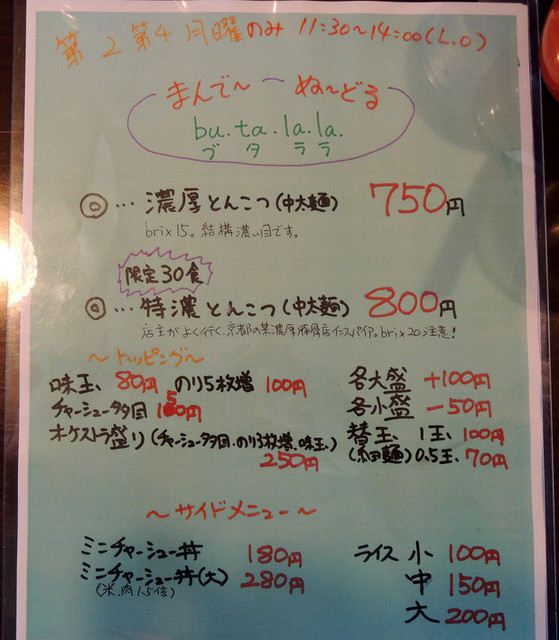 第2第4月曜のみ 11:30~14:00(L.O)
まんで~ ぬ~どる
bu.ta.la.la.
ブ タ ラ ラ
◎…濃厚とんこつ(中太麺) 750円
brix15。結構濃い目です。
限定30食
◎…特濃とんこつ(中太麺) 800円
店主がよく行く、京都の某濃厚豚骨店インスパイア。brix20注意!
~トッピング~
味玉、80円 のり5枚増 100円
チャーシュー多め 150円
オケストラ盛り(チャーシュー多め、のり5枚増、味玉)
250円
各大盛 +100円
各小盛 -50円
替玉、1玉、100円
(細麺)0.5玉、70円
~サイドメニュー~
ミニチャーシュー丼 180円
ミニチャーシュー丼(大) 280円
(米、肉1.5倍)
ライス 小 100円
中 150円
大 200円